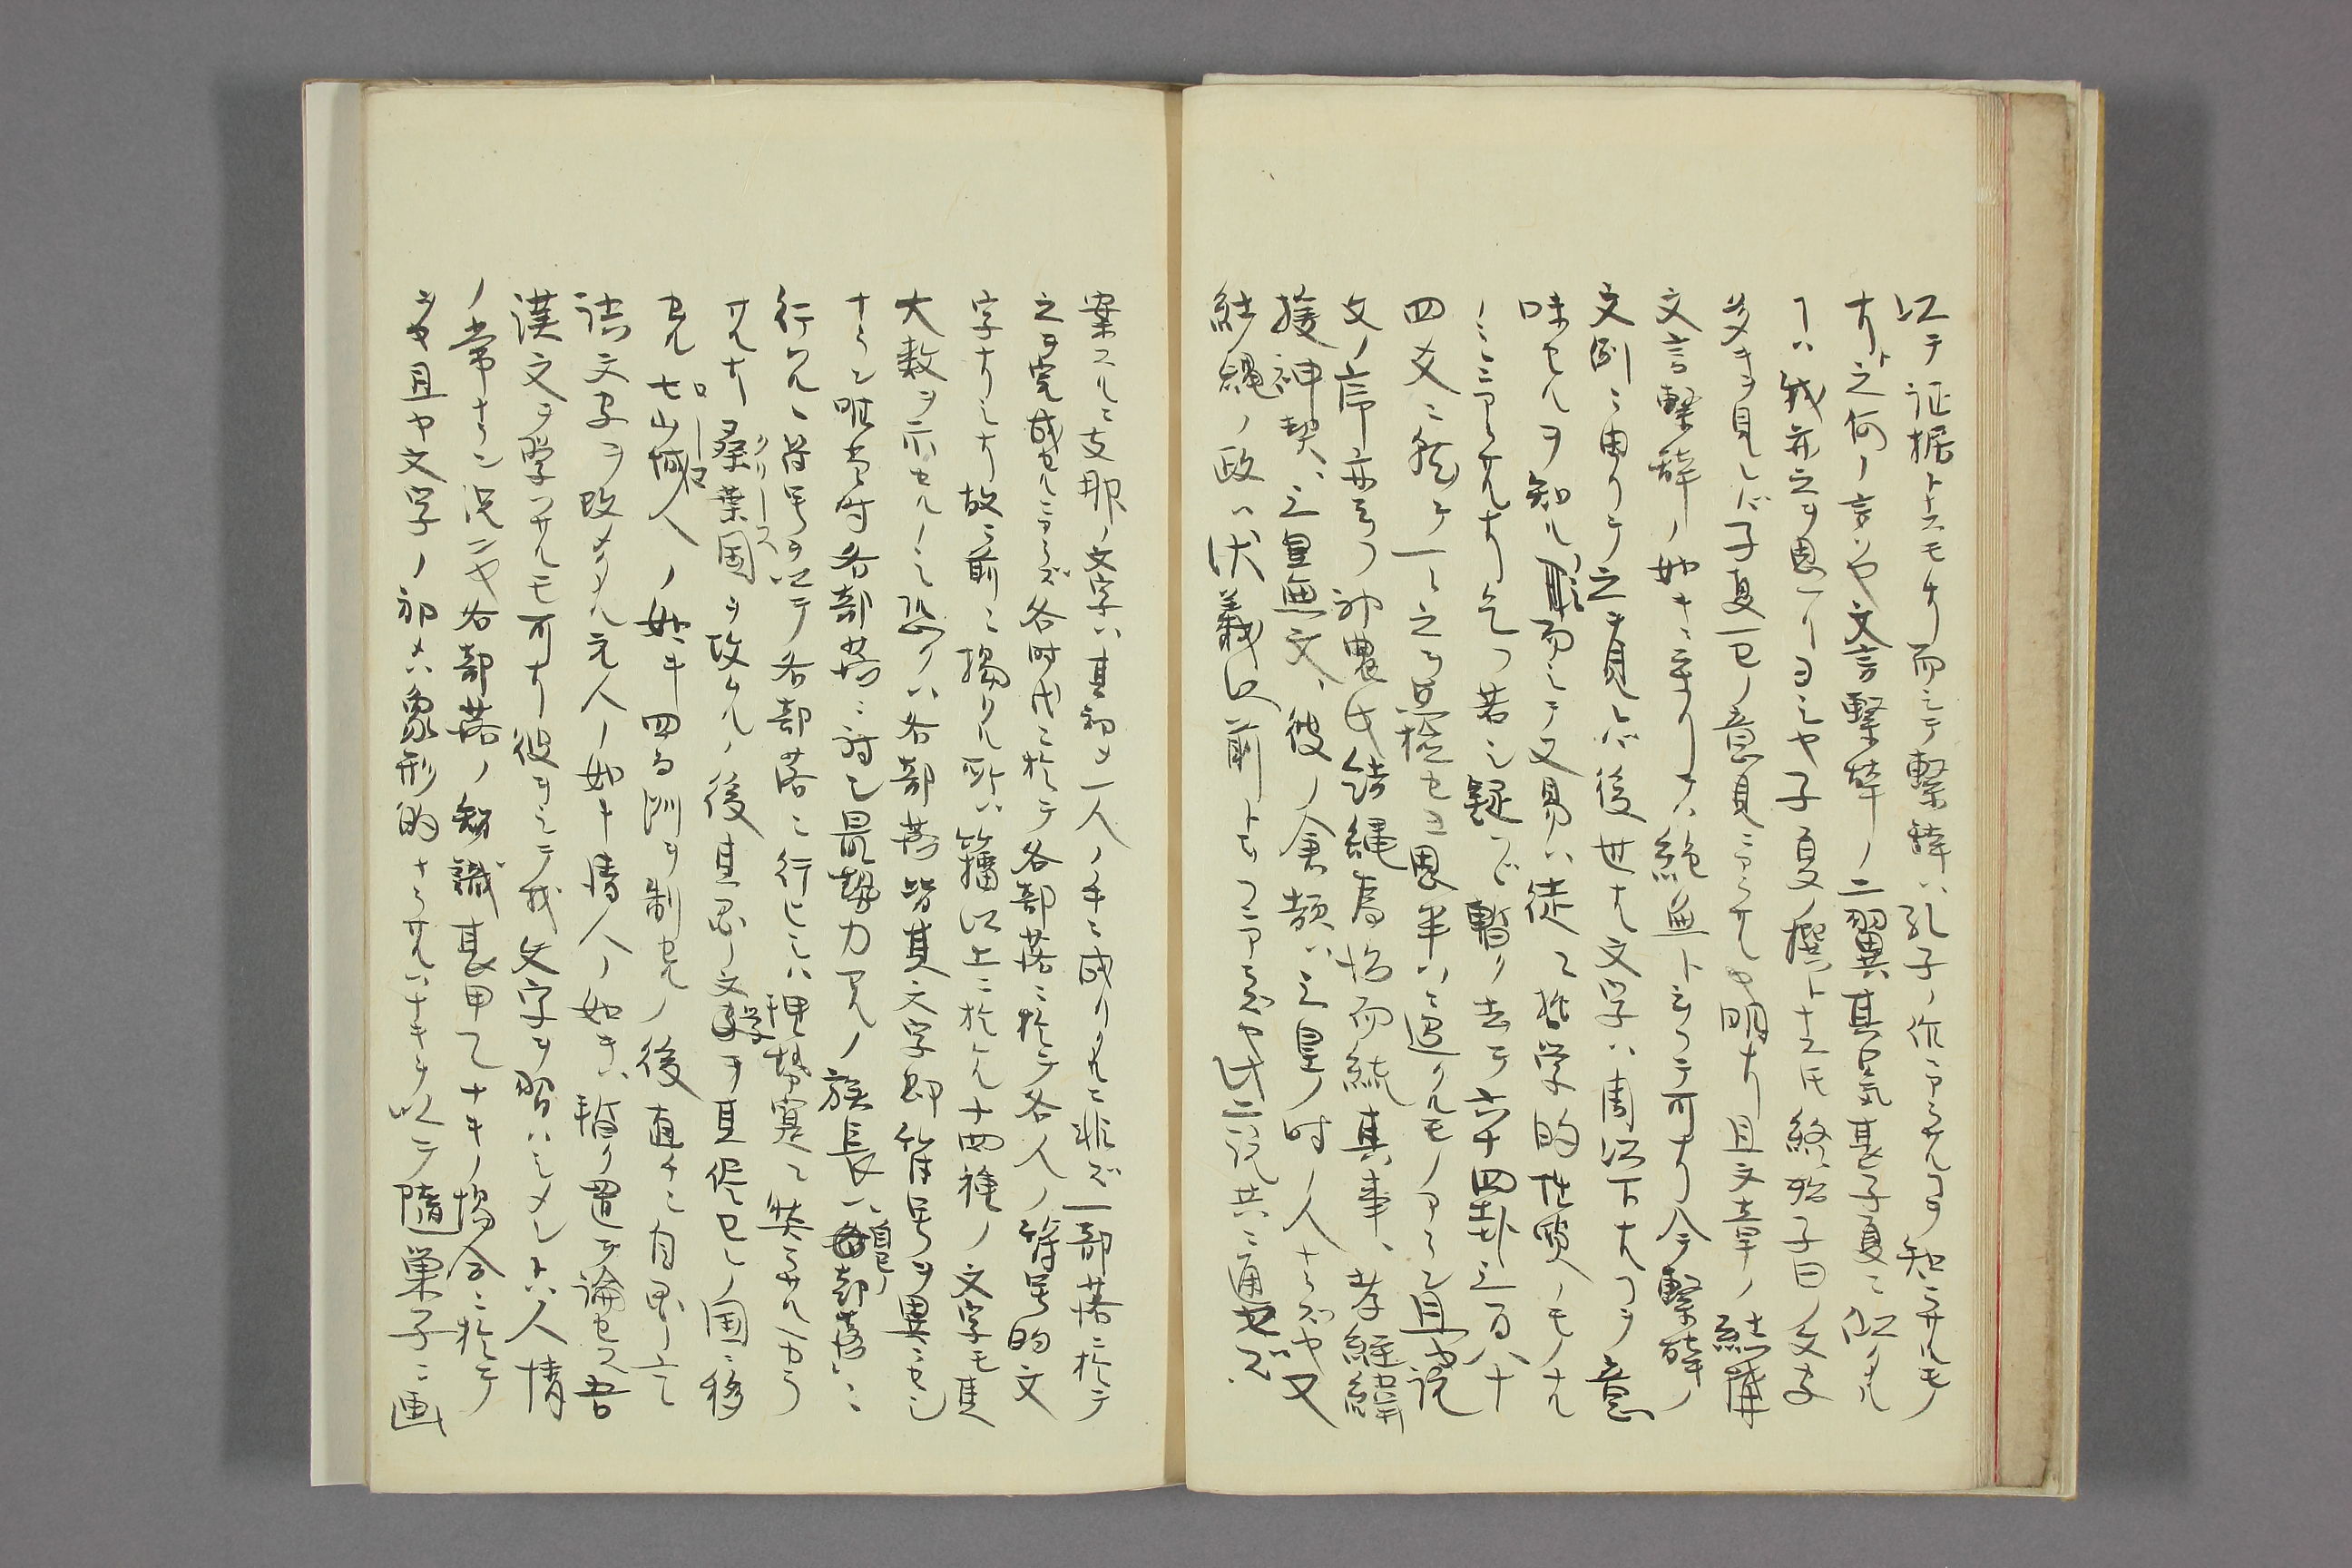 以テ証拠トスモナリ而シテ繋辞ハ孔子ノ作ニアラザルヲ知ラザルモノ
ナリト之何ノ言ゾヤ文言繋辞ノ二翼其呂氣甚子夏ニ似タル
ハ我亦之ヲ思ヘリヨシヤ子夏ノ撰トスルモ終始子曰ノ文字
多キヲ見レバ子夏一己ノ意見ニアラザルヤ明ナリ且文章ノ結構
文言繋辞ノ如キニ至リテハ絶無ト云フテ可ナリ今繋辞ノ
文例ニ由リテ之ヲ見レバ後世ナル文学ハ周以下ナルヿヲ意
味セルヲ知ル而シテ又易ハ徒ニ哲学的性質ノモノナル
ノミニアラザルナリ乞フ若シ疑ハバ暫ク去テ六十四卦三百八十
四爻ニ就テ一々之ヲ点検セヨ思半ハニ過クルモノアラン且ヤ説
文ノ序亦云フ神農氏結縄為治而統其事、孝経緯
援神契、三皇無文、彼ノ倉頡ハ三皇ノ時ノ人ナラズヤ又
結縄ノ政ハ伏義以前トセフニアラズヤ此二説共ニ通セズ
案スルニ支那ノ文字ハ其初ヨリ一人ノ手ニ成リタルニ非ズ一部落ニ於テ
之ヲ完成セルニアラズ各時代ニ於テ各部落ニ於テ各人ノ符号的文
字ナリシナリ故ニ前ニ掲クル所ハ籀以上ニ於ケル十四種ノ文字モ其
大数ヲ示セルノミ恐クハ各部落皆其文字即符号ヲ異ニセシ
ナラン唯当時各部落ニ対シ最勢力アルノ族長ハ自己ノ部落ニ
行ハルヽ符号ヲ以テ各部落ニ行ヒシハ理勢寔ニ然ラザルベカラ
ザルナリ桑葉国ヲ攻ムルノ後其国ノ文学ヲ其侭己レノ国ニ移
セル七山城人ノ如キ四百州ヲ制セルノ後直チニ自国ノ立テ
詰文字ヲ改メタル元人ノ如キ清人ノ如キハ暫ク置テ論セズ吾
漢文ヲ学フザルモ可ナリ彼ヲシテ我文字ヲ習ハシメントハ人情
ノ常ナラン況ンヤ各部落ノ知識甚甲乙ナキノ場合ニ於テ
ヲヤ且ヤ文字ノ初メハ象形的ナラザルハナキヲ以テ随巣子ニ画
クリース
ローマ